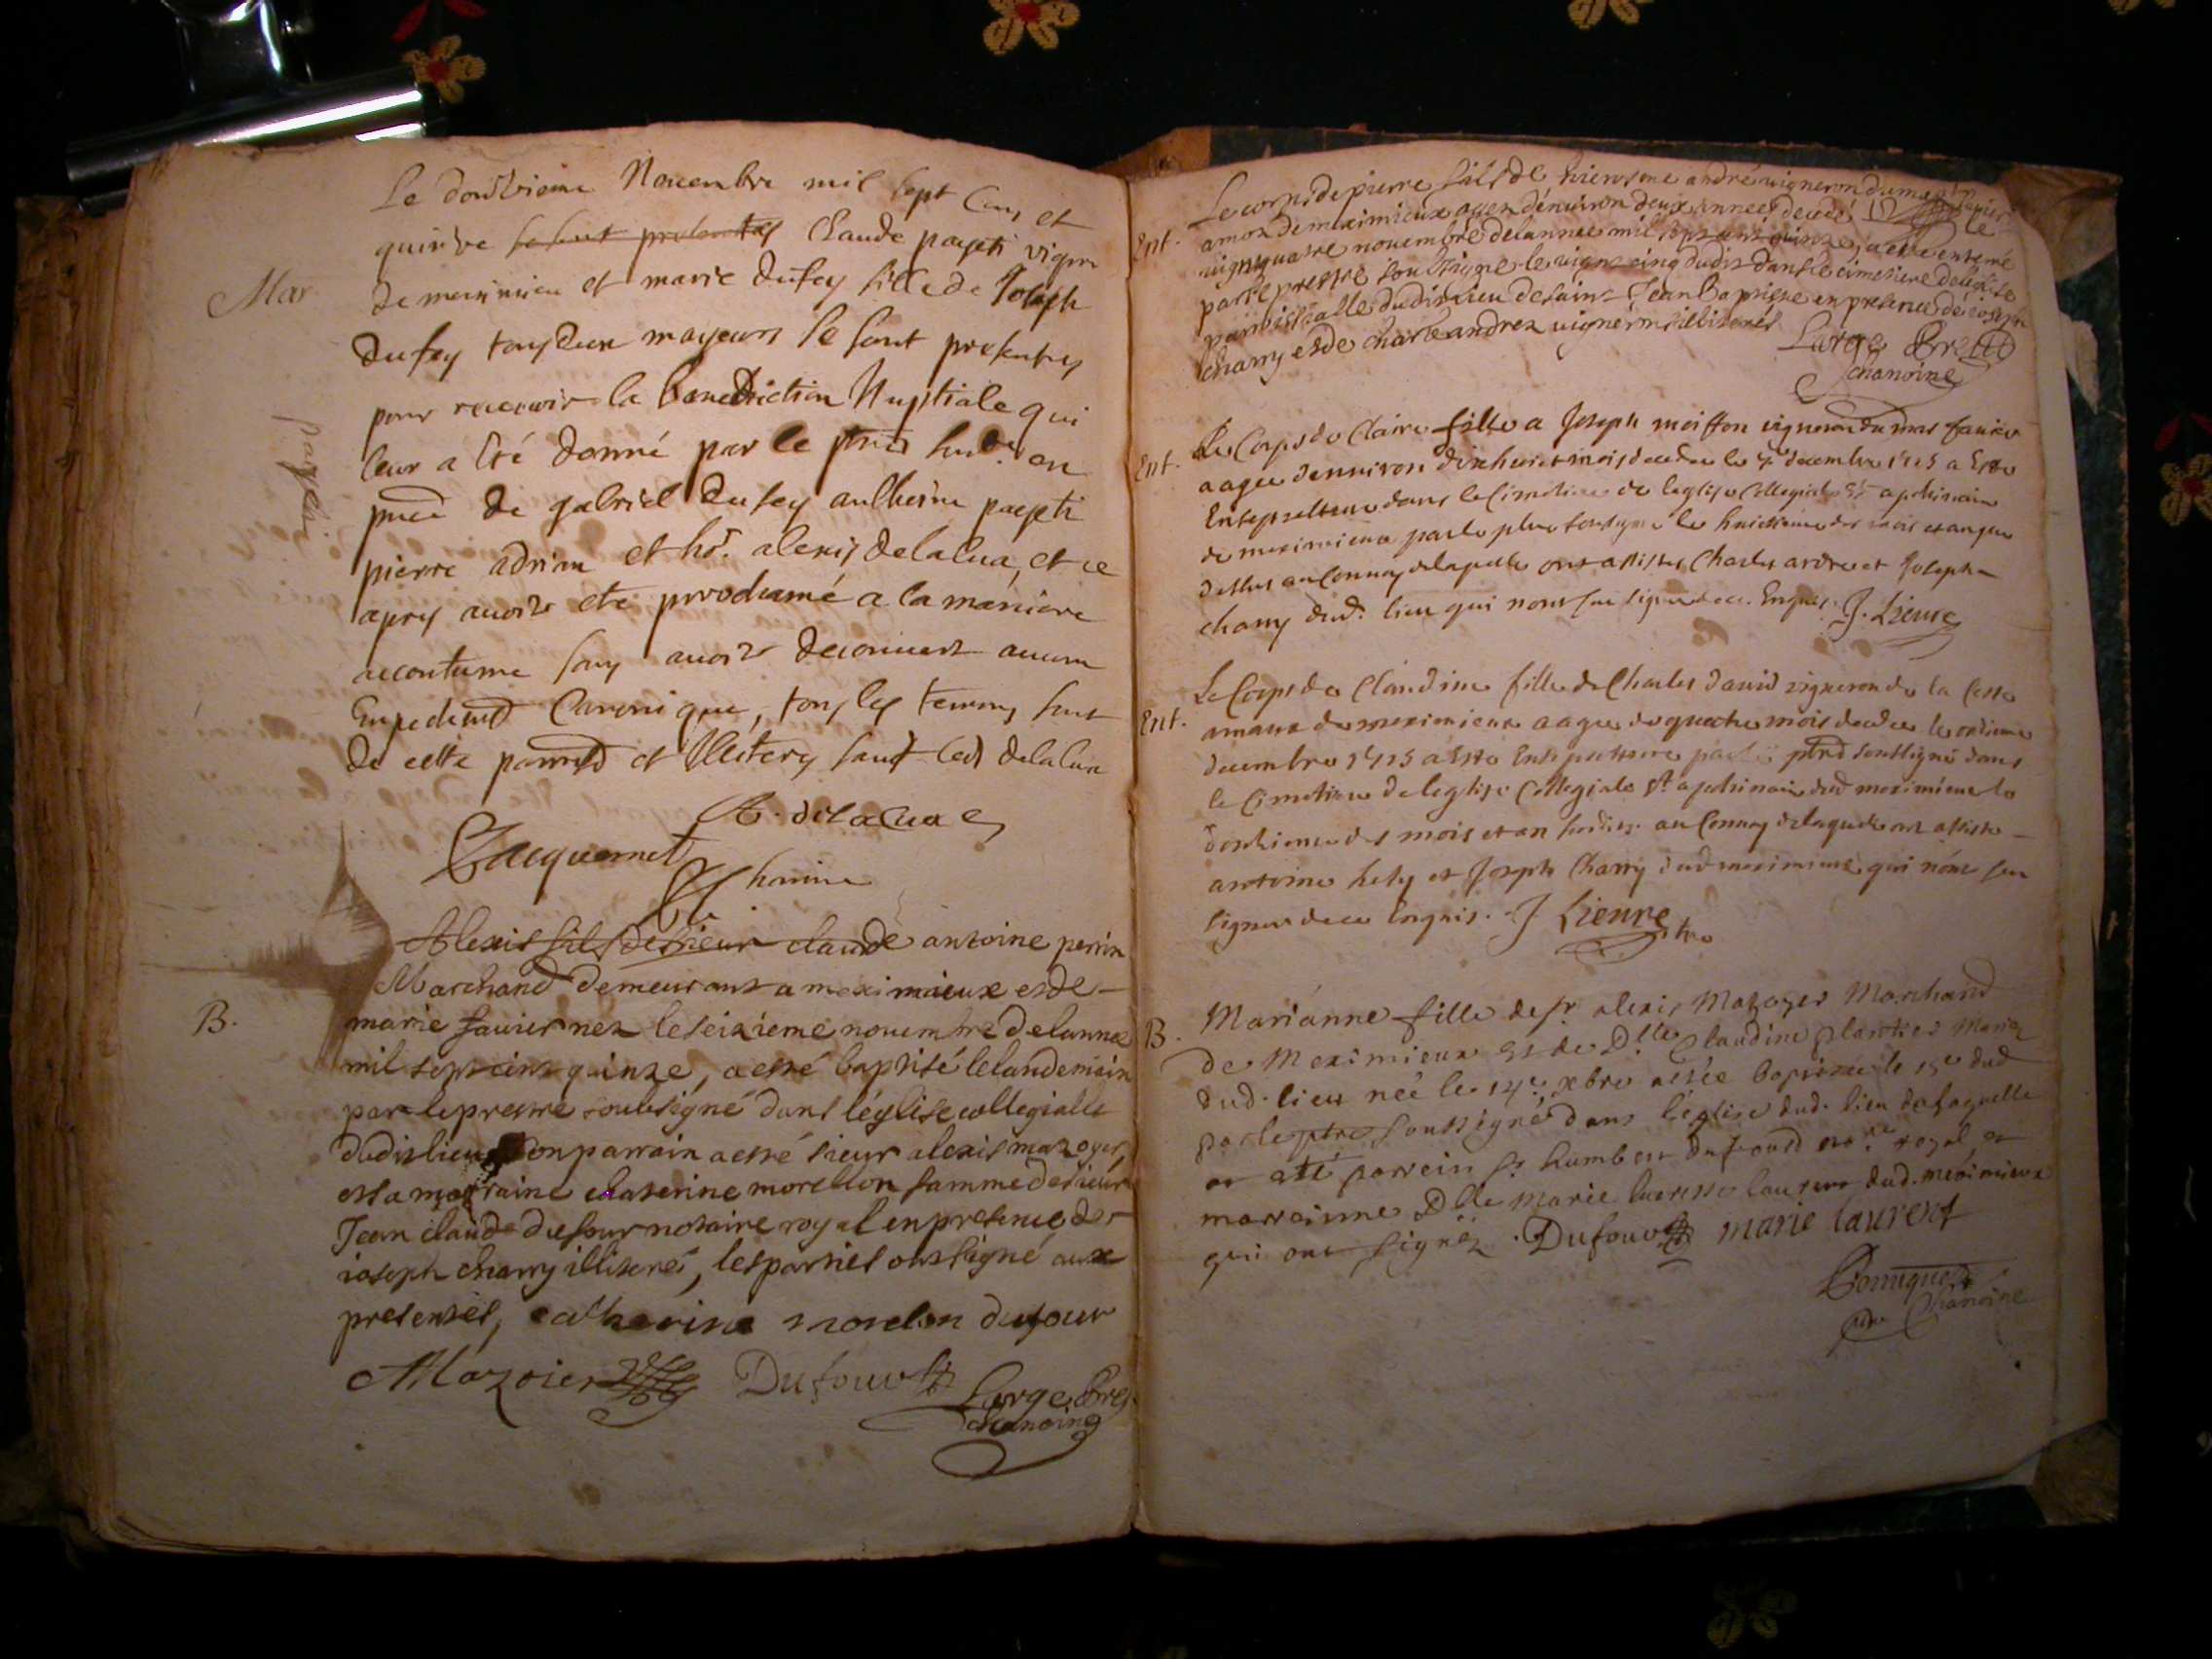 Le douzieme Novembre mil sept Cens et
quinze se sont presentes Claude payeti vigner
Mar
de meximieu et marie dufey fille de Joseph
dufey tous deux mayeurs se sont presentes
pour recevoir la benediction Nuptiale qui
leur a été donné par le
de gabriel dufey anthoine payeti
pierre adrian et alexis delalua, et ce
apres avoir eté proclamé a la maniere
accoutume sans avoir decouvert aucun
Canonique, tous les temoins sont
de cette et Illiterez sauf led delalua
A. delalua
Jacquemet
Chanoine
Alexis fils de sieur claude antoine perrin
Marchand demeurant a meximieux et de
B.
marie favier nez le seizieme novembre de lannee
mil sept cens quinze, a esté baptisé le landemain
par le prestre soubsigné dans léglise collegialle
dudit lieu son parrain a esté sieur alexis mazoyer,
et sa marraine chaterine morellon famme de sieur
Jean claude dufour notaire royal en presence de
ioseph charry illiteré, les parties ont signé aux
presentes, catherine morelon dufour
Mazoier Dufour
Large Pre
chanoine
Le corps de pierre fils de hierosme andré vigneron du mas favier
Ent.
amon de meximieux agez dénviron deux années decedé le
vingtquatre novembre de lannee mil sept cens quinze, a esté enterré
par le prestre soussigné le vingt cinq dudit dans le cimetiere de léglise
paroissialle dudit lieu de saint Jean Baptiste en presence de ioseph
charry et de charle andrez vignerons illiterés
Large Pre
chanoine
Ent.
Le Corps de Claire fille a Joseph moiffon vigneron du mas favier
aagee denviron dixhuict mois decedee le 7e decembre 1715 a Esté
dans le Cimetiere de leglise Collegiale St apolinaire
de meximieux par le ptre soussigne le huictieme des mois et an que
dessus au Convoy de laquelle ont assistes Charles andre et Joseph
charry dud. lieu qui nont sceu signer de ce Enquis. J. Lieure
Le Corps de Claudine fille de Charles david vigneron de la Coste
Ent.
amaux de meximieux aagee de quatre mois decedee le onzieme
decembre 1715 a esté par le ptre soussigné dans
le Cimetiere de leglise Collegiale St apolinaire dud meximieux le
douzieme des mois et an susdits. au Convoy de laquelle ont assiste
antoine hely et Joseph Charry dud meximieux qui nont sceu
signer de ce Enquis. J. Lieure ptre
B.
Marianne fille de sr alexis Mazoyer Marchand
de Meximieux Et de Dlle Claudine plantier Mariez
dud. lieu née le 14e xbre a etée Baptisée le 15e dud
par le ptre soussigné dans l'église dud. lieu de laquelle
ot eté parrein Sr humbert Dufour royal et
marreinne Dlle Marie laurent dud. meximieux
qui ont signéz. Dufour marie laurent
Chanoine